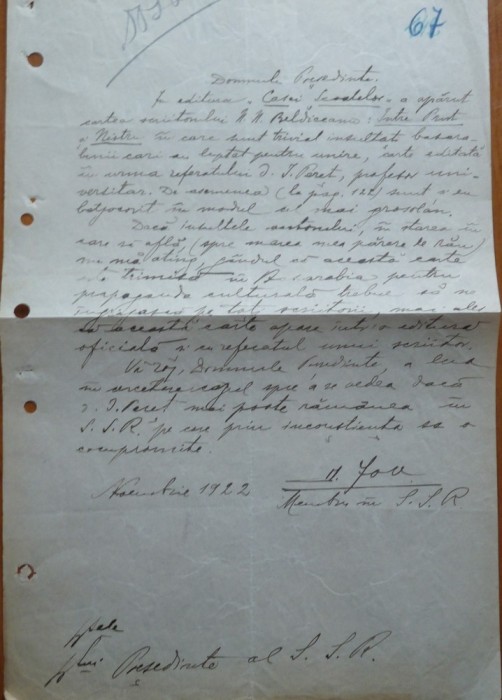 67
Domnule Președinte.
In editura „Casei Școalelor" a apărut
cartea scriitorului N. N. Beldiceanu: Între Prut
și Nistru în care sunt trivial insultat basara-
benii cari au luptat pentru unire, carte editată
în urma referatului d. I. Peret, profesor uni-
versitar. De asemenea (la pag. 122) sunt și eu
batjocorit în modul cel mai grosolan.
Dacă insultele autorului, în starea în
care se află, (spre marea mea părere de rău)
nu mă ating, gândul că această carte
este trimisă în Basarabia pentru
propaganda culturală trebue să ne
pe toți scriitorii mai ales
că această carte apare într'o editura
oficială și cu referatul unui scriitor.
Vă rog, Domnule Președinte, a lua
în cercetare cazul spre a se vedea dacă
d. I. Peret mai poate rămânea în
S. S. R. pe care prin inconștiența sa o
compromite.
Noembrie 1922
D. Iov
Membru în S. S. R
Președinte al S. S. R.